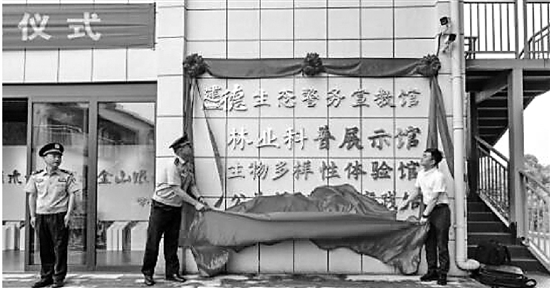 仪式
建德生态警务宣教馆
林业科普展示馆
生物多样性体验馆
金山银